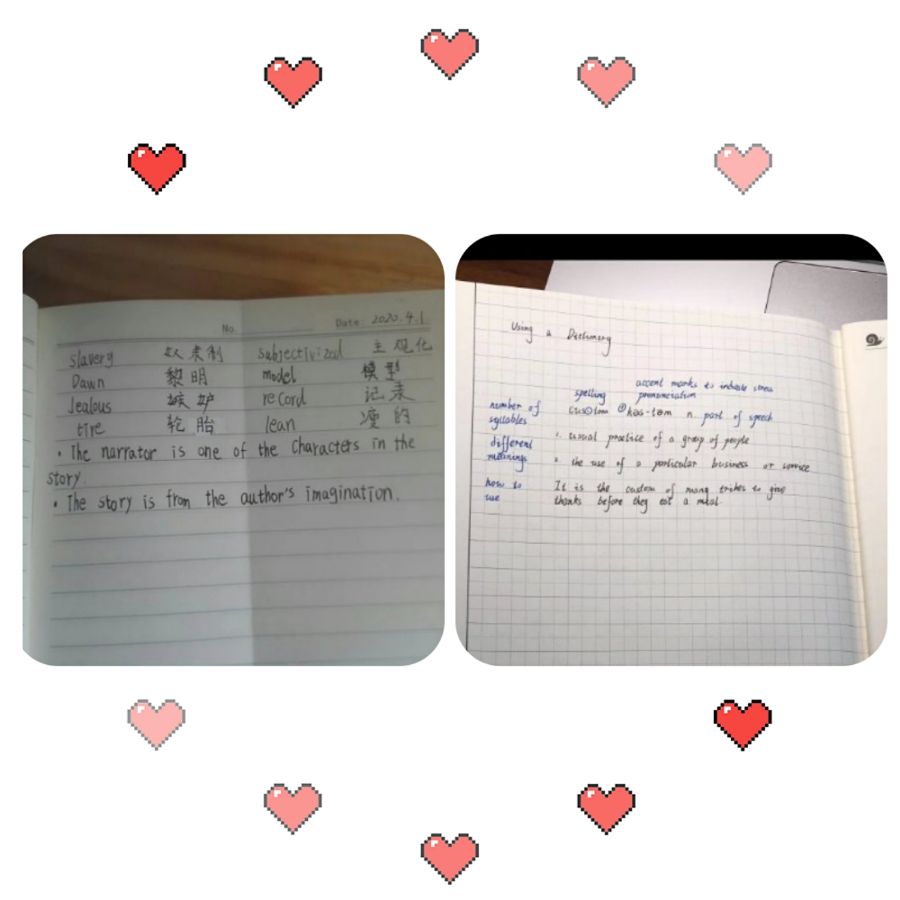 No. Date 2020.4.1
slavery 奴隶制 subjectivized 主观化
Dawn 黎明 model 模型
Jealous 嫉妒 record 记录
tire 轮胎 lean 瘦的
• The narrator is one of the characters in the
story
• The story is from the author's imagination.
Using a Dictionary
accent marks to indicate stress
spelling pronunciation
number of syllables
custom kəs-təm n. part of speech
different meanings
1. usual practice of a group of people
2. the use of a particular business or service
how to use
It is the custom of many tribes to give
thanks before they eat a meal